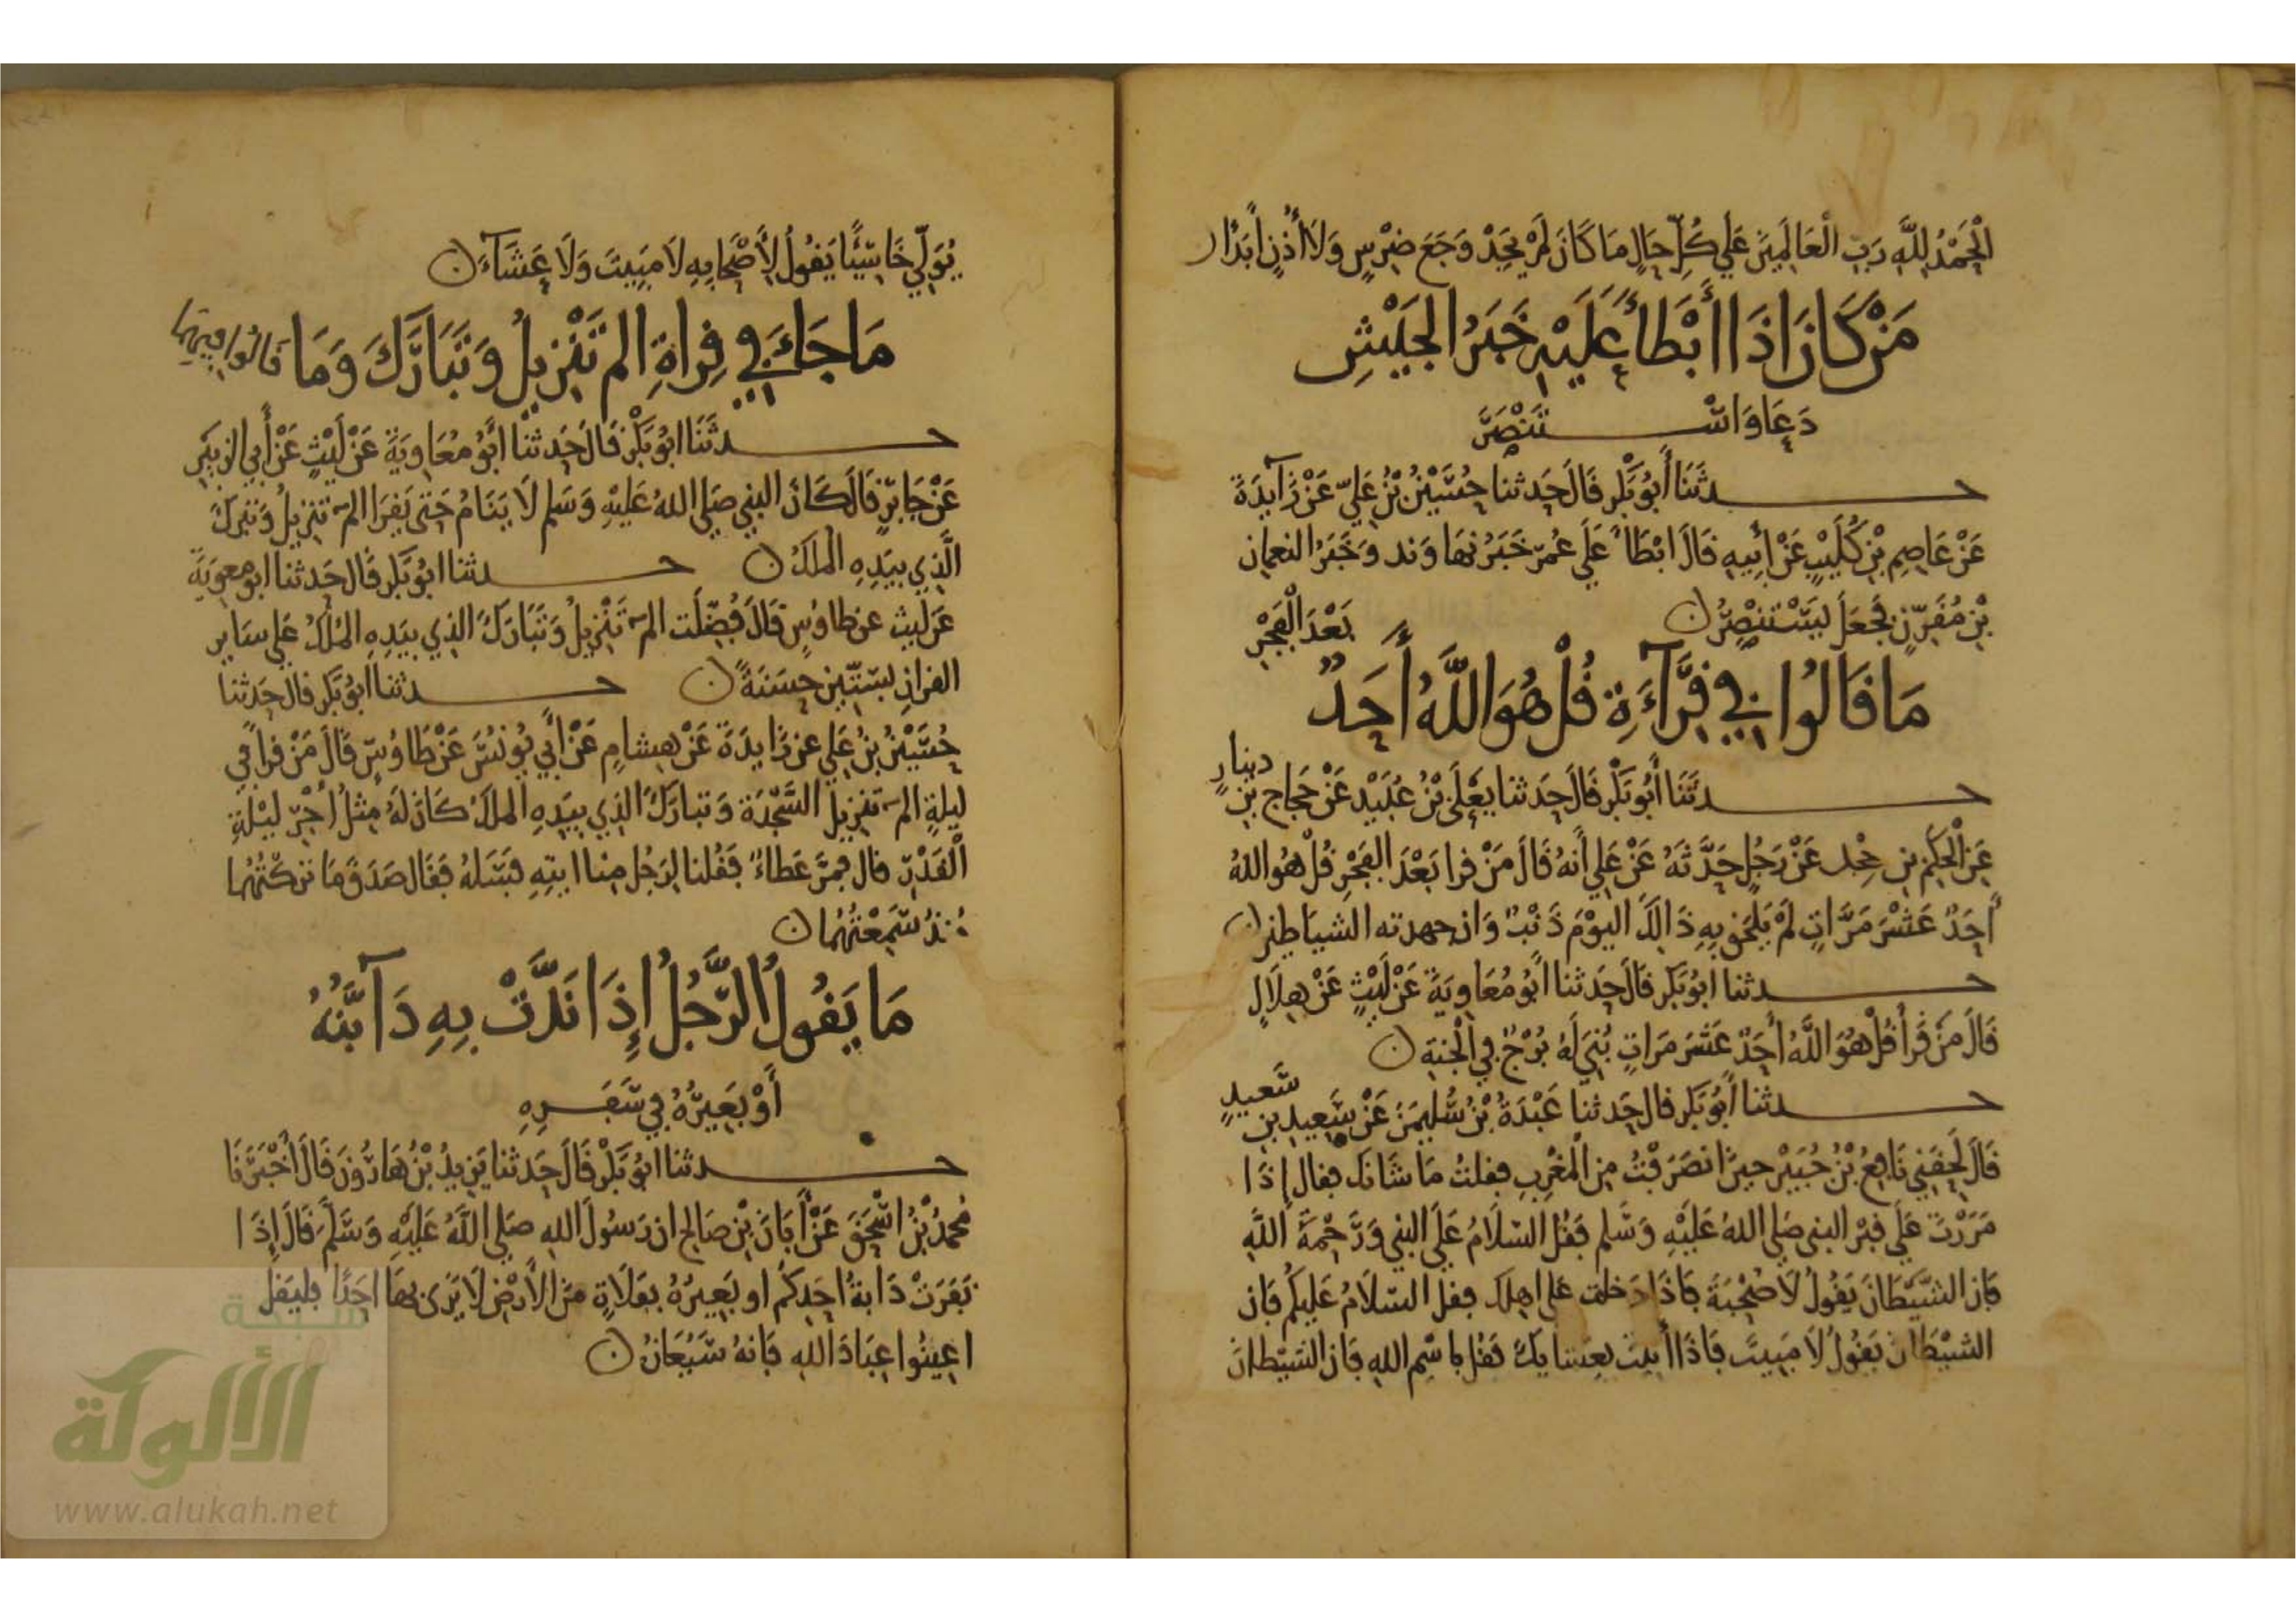 الْحَمْدُ لِلَّهِ رَبِّ الْعَالَمِينَ عَلَى كُلِّ حَالٍ مَا كَانَ لَمْ يَجِدْ وَجَعَ ضِرْسٍ وَلَا أُذُنٍ أَبَدًا
مَنْ كَانَ إِذَا أَبْطَأَ عَلَيْهِ خَبَرُ الْجَيْشِ
دَعَا وَاسْتَنْصَرَ
حدثَنَا أَبُو بَكْرٍ قَالَ حَدثنا حُسَيْنُ بْنُ عَلِيٍّ عَنْ زَآيِدَةَ
عَنْ عَاصِمِ بْنِ كُلَيْبٍ عَنْ أَبِيهِ قَالَ ابْطَأَ عَلَى عُمَرَ خَبَرُ نهَاوَند وَخَبَرُ النعمان
بْنِ مُقَرِّنٍ فَجَعَلَ يَسْتَنْصِرُ
بَعْدَ الْفَجْرِ
مَا قَالُوا فِي قِرَآءَةِ قُلْ هُوَ اللَّهُ أَحَدٌ
حدثَنَا أَبُو بَكْرٍ قَالَ حَدثنا يَعْلَى بْنُ عُبَيْدٍ عَنْ حَجَّاجِ بْنِ دينارٍ
عَنِ الْحَكَمِ بْنِ جَحْل عَنْ رَجُلٍ حَدَّثَهُ عَنْ عَلِي أَنَّهُ قَالَ مَنْ قرا بَعْدَ الْفَجْرِ قُلْ هُوَ اللهُ
أَحَدٌ عَشْرَ مَرَّاتٍ لَمْ يَلْحَقْ بِهِ ذَالِكَ الْيَوْمَ ذَنْبٌ وَان جهدته الشيَاطين
حدثنا ابُو بَكر قَالَ حَدثنا أَبُو مُعَاوِيَةَ عَنْ لَيْثٍ عَنْ هِلَالٍ
قَالَ مَنْ قَرَأَ قُلْ هُوَ اللَّهُ أَحَدٌ عَشَرَ مَرَاتٍ بُنِيَ لَهُ بُرْجٌ فِي الْجَنَّةِ
حدثنا أَبُو بَكر قال حَدثنا عَبْدَةُ بْنُ سُلَيْمَنَ عَنْ سَعِيدِ بْنِ سَعيدٍ
قَالَ لَحِقَنِي نَافِعُ بْنُ جُبَيْرٍ حِينَ انصَرَفْتُ مِنَ الْمَغْرِبِ فقلتُ مَا شَانك فقال إِذَا
مَرَرْتَ عَلَى قبْر النبي صَلى اللهُ عَلَيْهِ وَسَلم فَقُلْ السَّلَامُ عَلَى النبي وَرَحْمَةُ اللَّهِ
فَان الشَّيْطَانَ يَقُولُ لِأَصْحَابِهِ فَاذَا دَخلت على اهلك فقل السَّلَامُ عَلَيكُم فَان
الشَّيْطَانَ يَقُولُ لَا مَبِيتَ فَاذَا أُتيت بِعشايك فَقُل باسْمِ اللهِ فَان الشيْطان
يُوَلِّي خَاسِئًا يَقُولُ لِأَصْحَابِهِ لَا مَبِيتَ وَلَا عَشَآءَ
مَا جَاءَ فِي قِرَاةِ الم تَنْزِيلُ وَتَبَارَكَ وَمَا قَالُوا فِيهِمَا
حدثَنَا ابُو بَكْرٍ قَالَ حَدثنا أَبُو مُعَاوِيَةَ عَنْ لَيْثٍ عَنْ أَبِي الزبَيْرِ
عَنْ جَابِرٍ قَالَ كَانَ النبي صَلى اللهُ عَلَيْهِ وَسَلم لَا يَنَامُ حَتى يَقرَا الم تَنزِيلُ وَتبرك
الَّذِي بِيَدِهِ الْمُلْكُ حدثنا ابُو بَكر قَالَ حَدثنا ابو معوِيَة
عَنْ لَيث عن طاوُسٍ قَالَ فُضِّلَت الم تَنْزِيلُ وَتَبَارَكَ الذِي بيَدِهِ الْمُلْكُ عَلى سَاير
القرانِ بِسِتِّينَ حَسَنَةً حدثنا ابُو بَكر قال حَدثنا
حُسَيْنُ بْنُ عَلِي عن زَايِدَةَ عَنْ هِشامٍ عَنْ أَبِي يُونُسَ عَنْ طَاوُسٍ قَالَ مَنْ قرأ في
ليلةٍ الم تنزِيلُ السَّجْدَةَ وَتبارَكَ الذِي بيَدِهِ الملك كَانَ لَهُ مِثْلُ أَجْرِ لَيْلَةِ
الْقَدْرِ قال فمَرَّ عَطاءٌ فَقُلنا لِرَجُلٍ مِنا ايتِهِ فَسَلهُ فَقَال صَدَقَ مَا تركْتُهُما
مُنذُ سَمِعْتُهُمَا
مَا يَقُولُ الرَّجُلُ إِذَا نَدَّتْ بِهِ دَآبَّتُهُ
أَوْ بَعِيرُهُ فِي سَفَرِهِ
حدثنا ابُو بَكْرٍ قَالَ حَدثنا يَزِيدُ بْنُ هَارُونَ قَالَ أَخْبَرَنَا
مُحمدُ بْنُ اسْحَقَ عَنْ أَبَانَ بْنِ صَالِح ان رَسُولَ اللهِ صَلى اللَّهُ عَلَيْهِ وَسَلَّمَ قَالَ إِذَا
نَفَرَتْ دَابةُ أَحَدِكُم او بَعِيرُهُ بِفَلَاةٍ مِنَ الْأَرْضِ لَا يَرَى بهَا احَدًا فليَقل
اعِينُوا عِبَادَ اللهِ فَانهُ سَيُعَانُ
شبكة
الألوكة
www.alukah.net